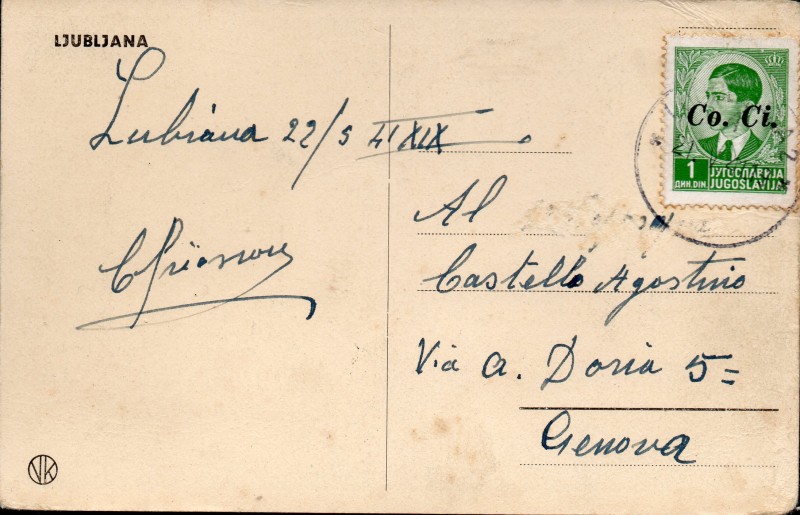 LJUBLJANA
Lubiana 22/5 41 XIX
Co. Ci.
1
ДИН. DIN
ЈУГОСЛАВИЈА
JUGOSLAVIJA
Al
Castello Agostino
Via A. Doria 5=
Genova
VK